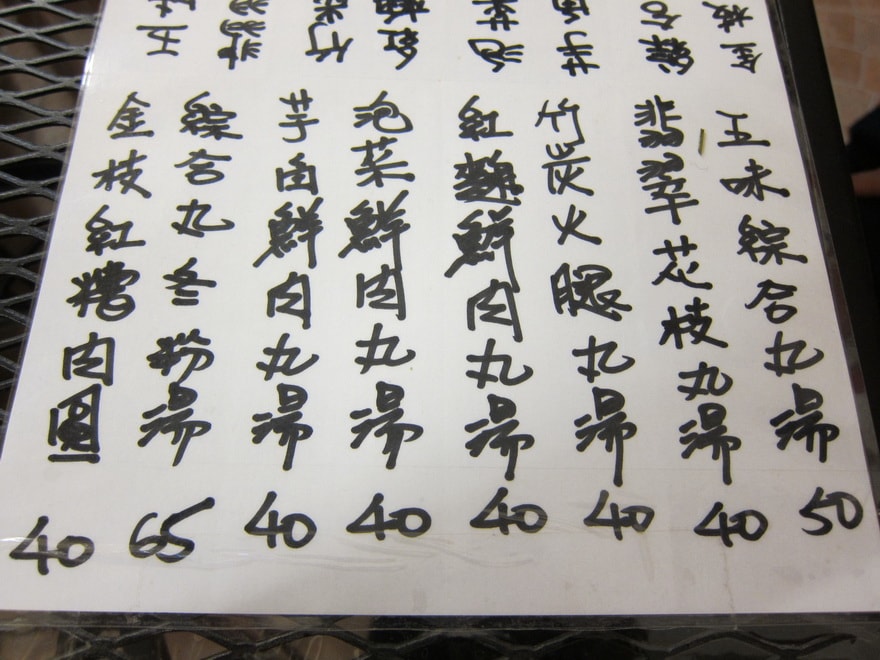 五味綜合丸湯 50
翡翠花枝丸湯 40
竹炭火腿丸湯 40
紅麴鮮肉丸湯 40
泡菜鮮肉丸湯 40
芋角鮮肉丸湯 40
綜合丸冬粉湯 65
金枝紅糟肉圓 40